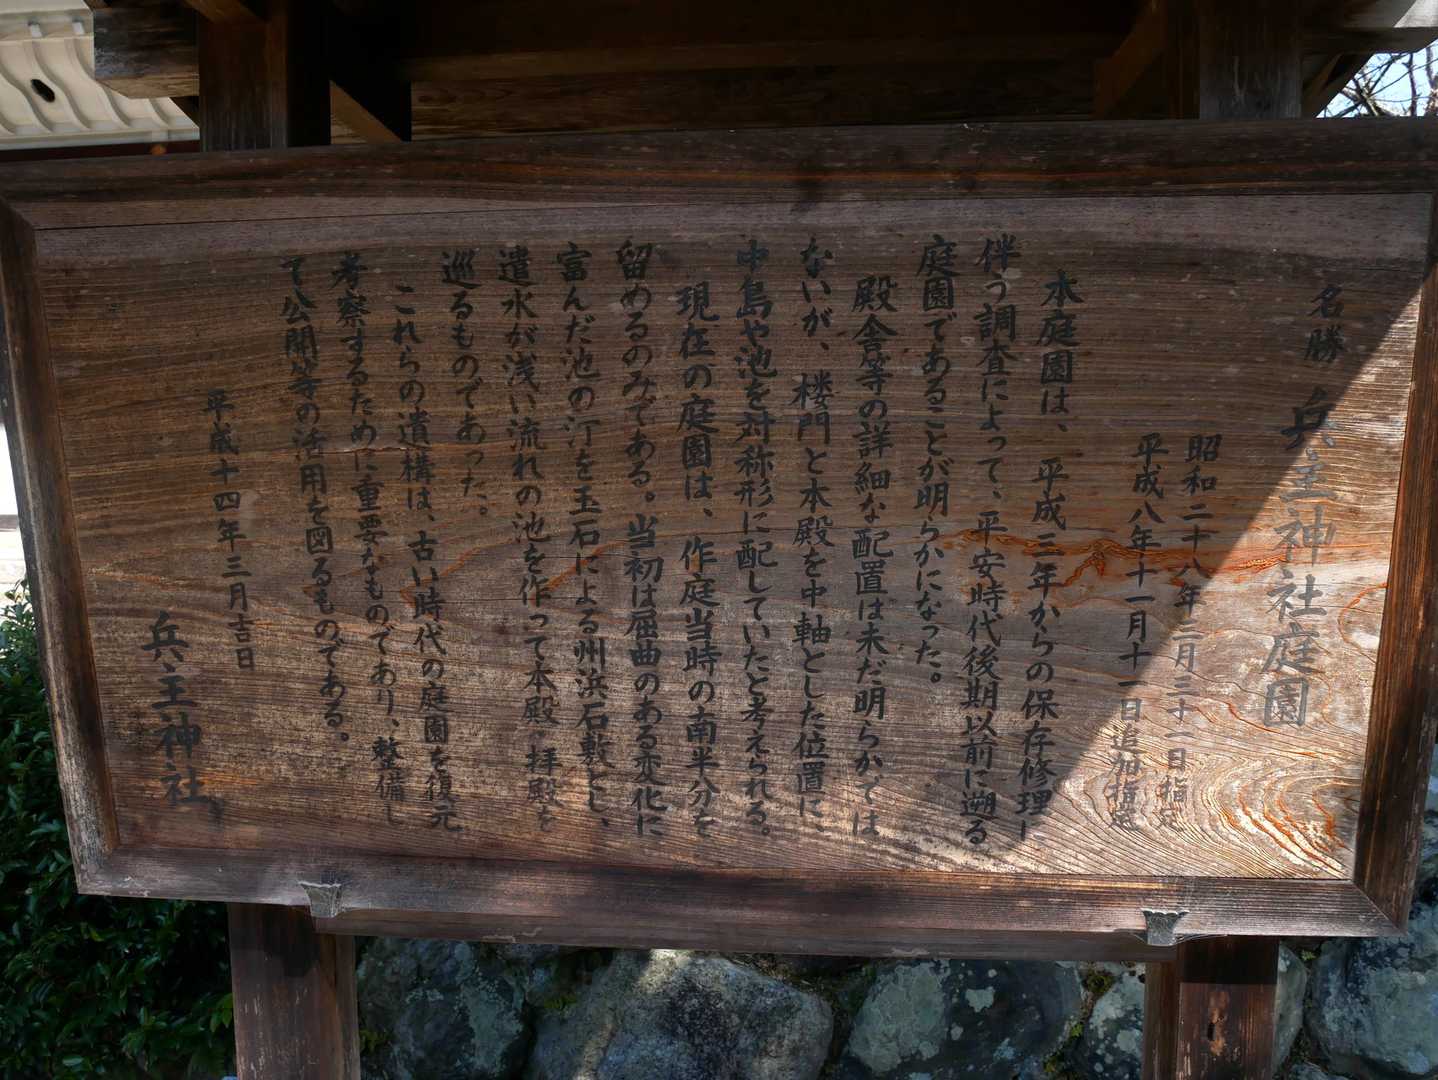 名勝 兵主神社庭園
昭和二十八年三月三十一日指定
平成八年十一月十一日追加指定
本庭園は、平成三年からの保存修理に
伴う調査によって、平安時代後期以前に遡る
庭園であることが明らかになった。
殿舎等の詳細な配置は未だ明らかでは
ないが、楼門と本殿を中軸とした位置に、
中島や池を対称形に配していたと考えられる。
現在の庭園は、作庭当時の南半分を
留めるのみである。当初は屈曲のある変化に
富んだ池の汀を玉石による州浜石敷とし、
遣水が浅い流れの池を作って本殿・拝殿を
巡るものであった。
これらの遺構は、古い時代の庭園を復元
考察するために重要なものであり、整備し
て公開等の活用を図るものである。
平成十四年三月吉日
兵主神社